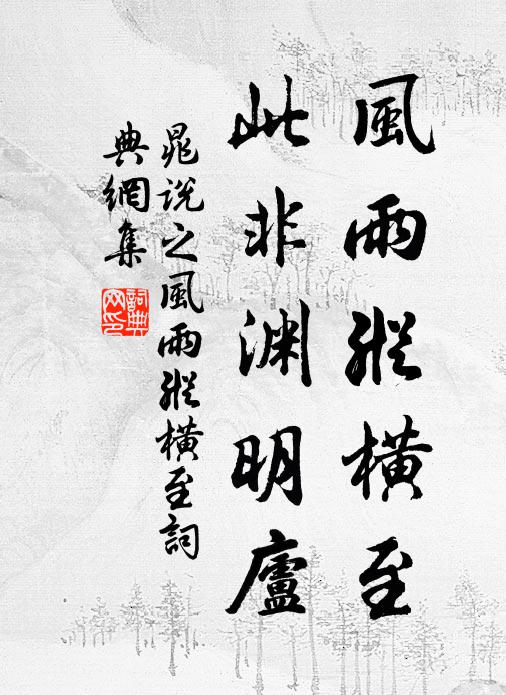 風雨縱橫至
此非渊明廬
晁說之風雨縱橫至詞
典網集
詞典
网印